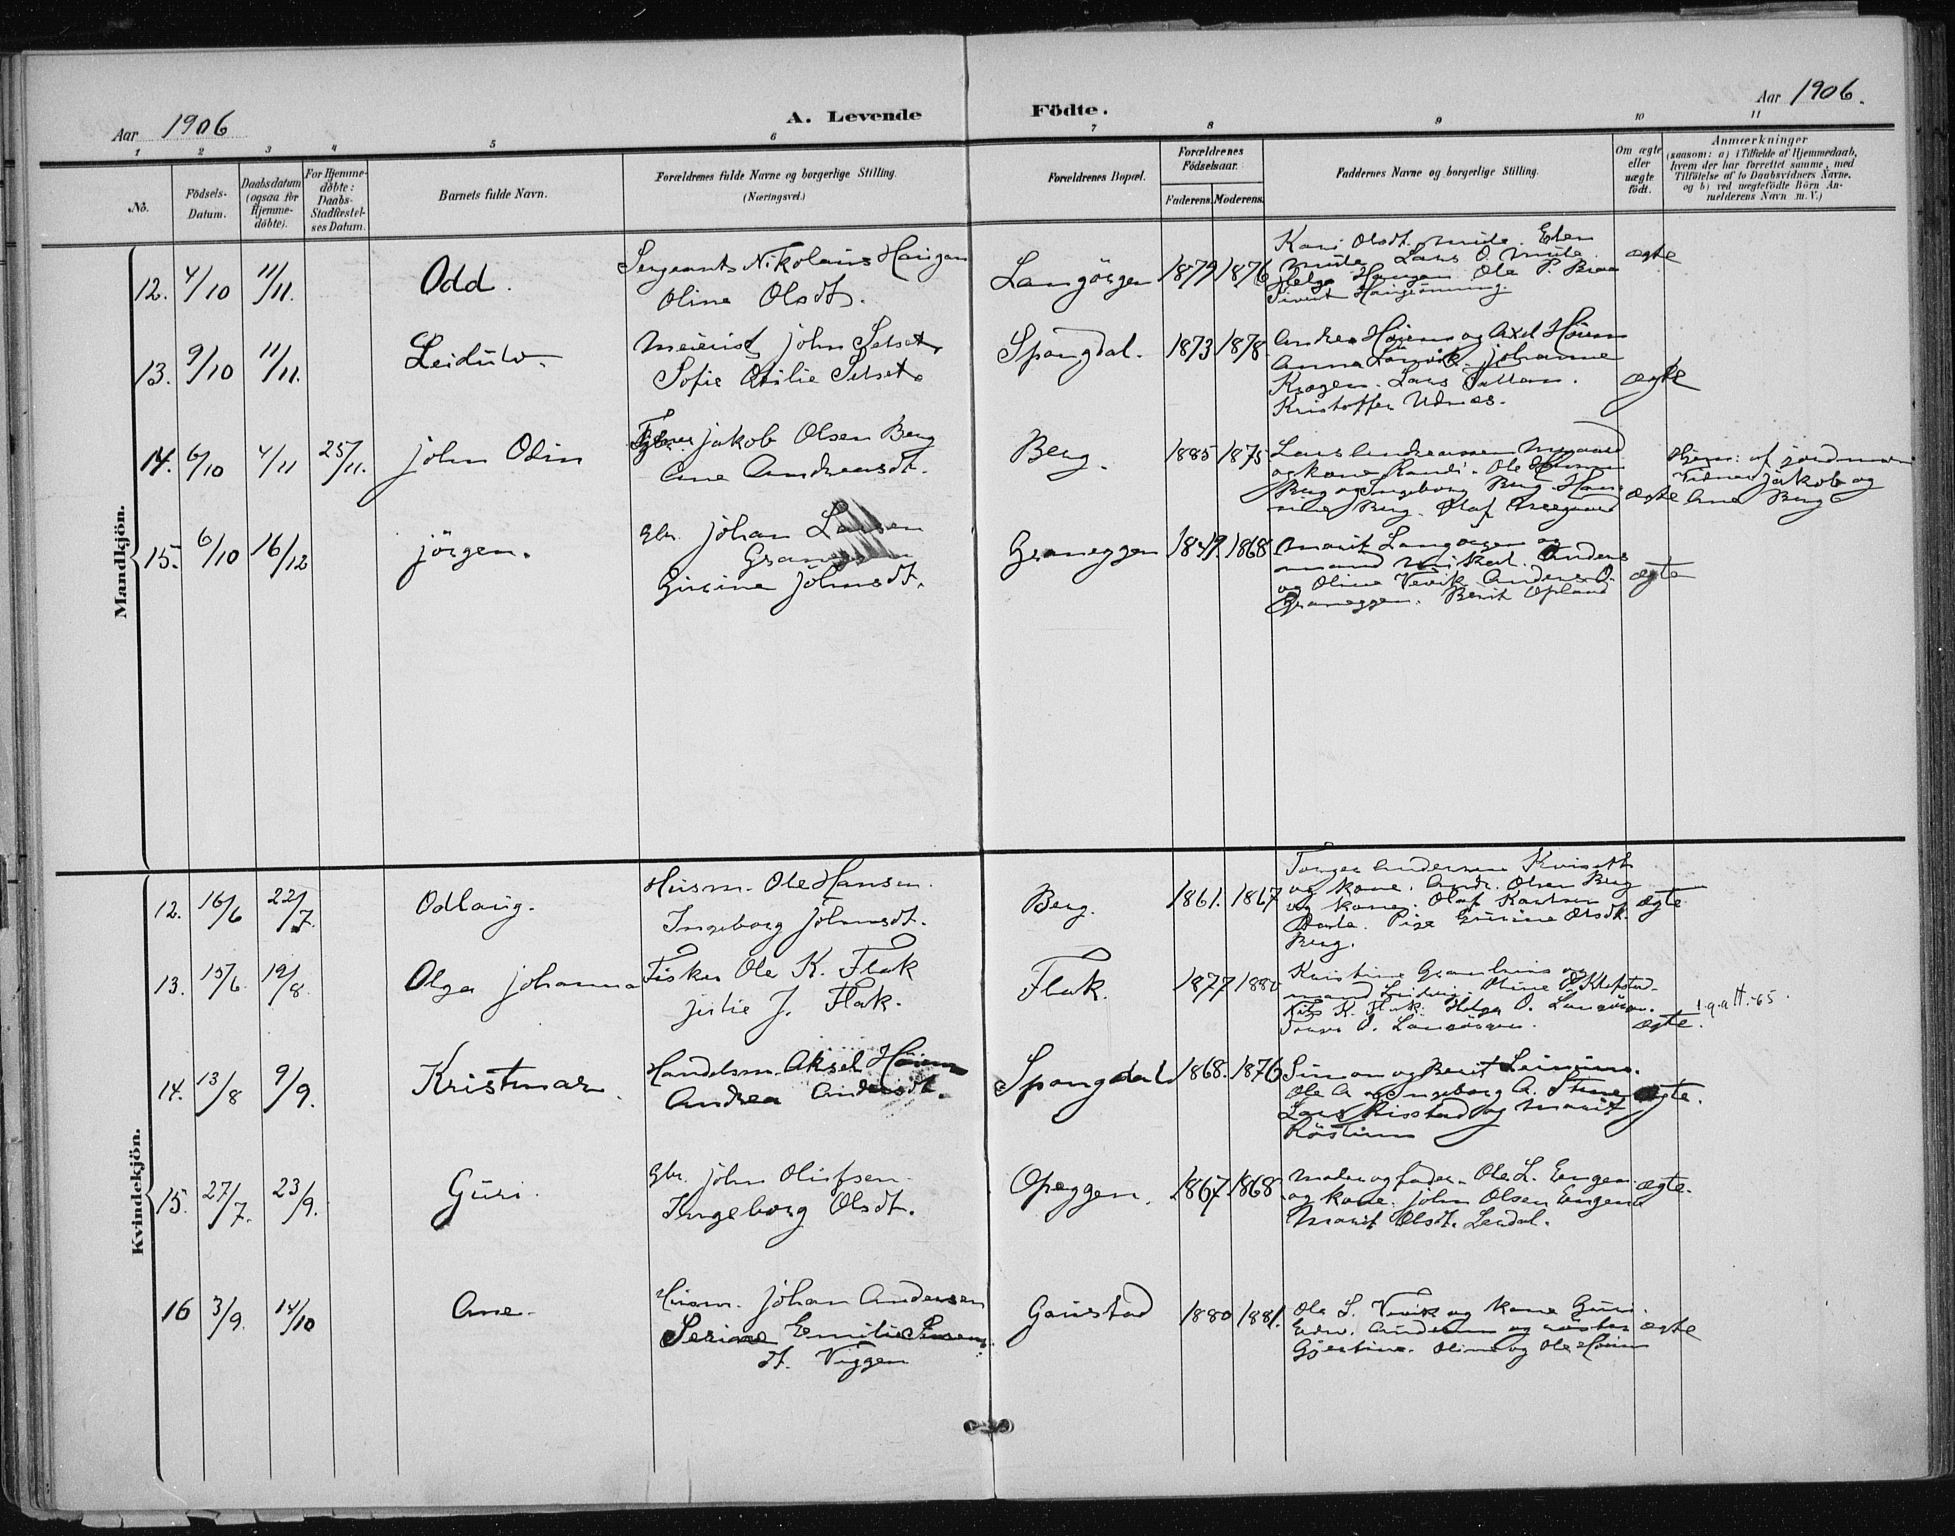 Aar 1906
A. Levende Födte.
Aar 1906.
1 2 3 4 5 6 7 8 9 10 11
No.
Födsels-
Datum.
Daabsdatum
(ogsaa for
Hjemme-
døbte).
For Hjemme-
døbte:
Daabs-
Stadfæstel-
ses Datum.
Barnets fulde Navn.
Forældrenes fulde Navne og borgerlige Stilling.
(Næringsvei.)
Forældrenes Bopæl.
Forældrenes
Födselsaar.
Faderens. Moderens.
Faddernes Navne og borgerlige Stilling.
Om ægte
eller
uægte
födt.
Anmærkninger
(saasom: a) i Tilfælde af Hjemmedaab,
hvem der har forrettet samme, med
Tilföielse af to Daabsvidners Navne,
og b) ved uægtefödte Börn An-
melderens Navn m. V.)
Mandkjön.
12. 4/10 11/11. Odd.
Sergeant Nikolaus Haugan
Oline Olsdt.
Langörgen 1879 1876
Kari Olsdt. Mule. Eten
Mule Lars O. Mule.
Helga Haugen Ole P. Braa
Sivert
ægte
13. 9/10 11/11. Leidulv.
Meierist John Selset.
Sofie Otilie Selset.
Spongdal. 1873 1878.
Andrea Høiem og Axel Høiem
Anna Johanne
Krogen. Lars
Kristoffer Udnæs.
ægte
14. 6/10 4/11 25/11. John Odin
Jakob Olsen Berg
Ane Andreasdt.
Berg. 1885 1875
Lars Andreassen
og kone Randi. Ole
Berg og Ingeborg Berg
Berg. Olaf
ægte
Hjem: af jordmor
Vidner Jakob og
Ane Berg
15. 6/10 16/12 Jörgen.
Gbr. Johan Larsen
Gurine Johnsdt.
Graneggen 1847 1868
Marit Langörgen og
mand Anders
og Oline Vevik Anders O.
Graneggen. Berit Opland
ægte
Kvindekjön.
12. 16/6 22/7. Odlaug.
Husm. Ole Hansen.
Ingeborg Johnsdt.
Berg. 1861. 1867
Andersen Kviseth
og kone. Andr. Olsen Berg
og kone. Olaf
Pige Gurine Olsdt.
Berg.
ægte
13. 15/6 19/8. Olga Johanna
Fisker Ole K. Flak
Julie J. Flak.
Flak. 1877 1880
Kristine og
mand Oline
K. Flak. Helga O. Langörgen.
O. Langörgen.
ægte.
14. 13/8 9/9. Kristmar.
Handelsm. Aksel Høiem
Andrea Andersdt.
Spongdal 1868. 1876
Simon og Berit Leinum.
Ole A og Ingeborg A.
Lars Risstad og Marit
ægte.
15. 27/7. 23/9. Guri.
Gbr. John Olufsen.
Ingeborg Olsdt.
Opeggen. 1867. 1868
Moder og fader. Ole L. Engen
og kone. John Olsen Engen
Marit Olsdt.
ægte.
16 3/9. 14/10 Ane.
Husm. Johan Andersen
Serine Emilie
dt. Viggen
Gaustad 1880 1881.
Ole L. Vevik og kone Guri.
Edv. Andersen og søster
Gjertine. Oline og Ole Høiem
ægte